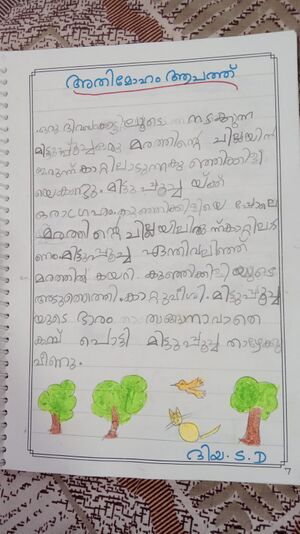 അതിമോഹം ആപത്ത്
ഒരു ദിവസം കാട്ടിലൂടെ നടക്കുന്ന
മിട്ടുപൂച്ച ഒരു മരത്തിന്റെ ചില്ലയിൽ
ഇരുന്ന് കാറ്റിലാടുന്ന കുഞ്ഞിക്കിളി
യെ കണ്ടു. മിട്ടു പൂച്ച യ്ക്ക്
ഒരാഗ്രഹം. കുഞ്ഞിക്കിളിയെ പോലെ
മരത്തി ന്റെ ചില്ലയിലിരു ന്ന് കാറ്റിലാട
ണം. മിട്ടുപൂച്ച ഏന്തിവലിഞ്ഞ്
മരത്തിൽ കയറി. കുഞ്ഞിക്കിളി യുടെ
അടുത്തെത്തി. കാറ്റുവീശി. മിട്ടുപൂച്ച
യുടെ ഭാരം താങ്ങാനാവാതെ
കമ്പ് പൊട്ടി മിട്ടുപൂച്ച താഴേക്കു
വീണു.
ദിയ. S. D
7